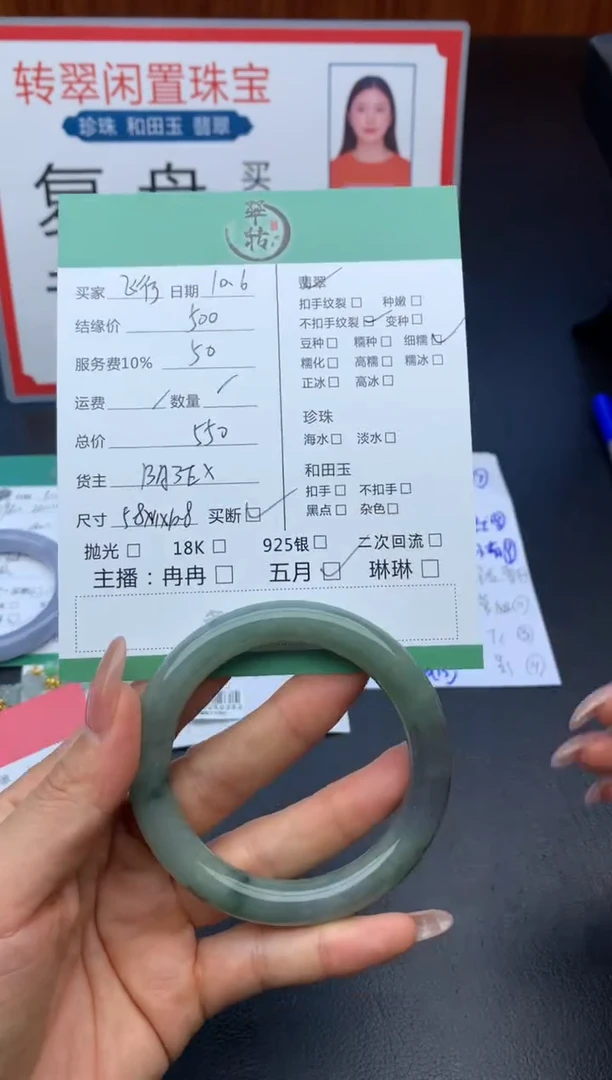 转翠闲置珠宝
珍珠 和田玉 翡翠
买
翠转
买家 飞行 日期 10.6
结缘价 500
服务费10% 50
运费 / 数量 /
总价 550
货主
尺寸 买断☑
翡翠
扣手纹裂□ 种嫩□
不扣手纹裂☑ 变种□
豆种□ 糯种□ 细糯☑
糯化□ 高糯□ 糯冰□
正冰□ 高冰□
珍珠
海水□ 淡水□
和田玉
扣手□ 不扣手□
黑点□ 杂色□
抛光□ 18K□ 925银□ 二次回流□
主播：冉冉□ 五月☑ 琳琳□